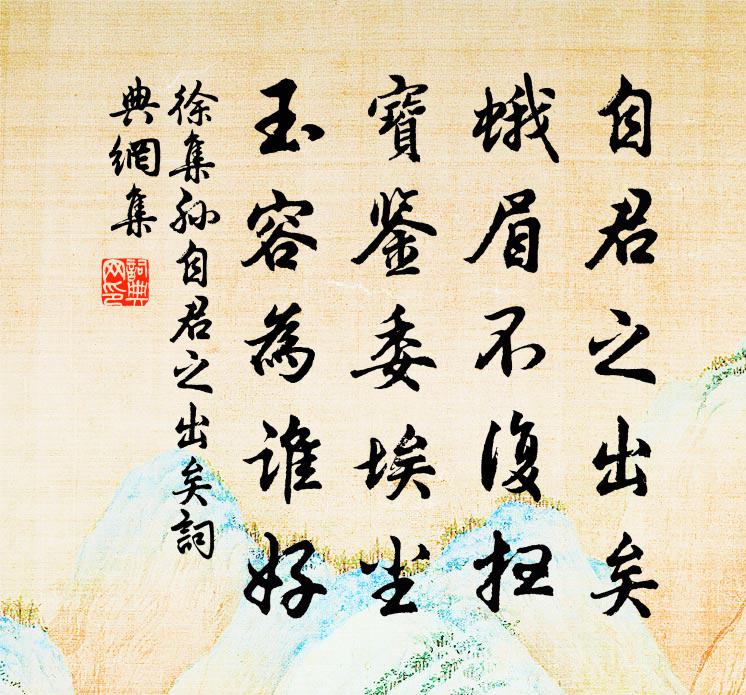 自君之出矣
蛾眉不復扫
寶鉴委埃尘
玉容為誰好
徐集孙自君之出矣詞
典網集
詞典
网印